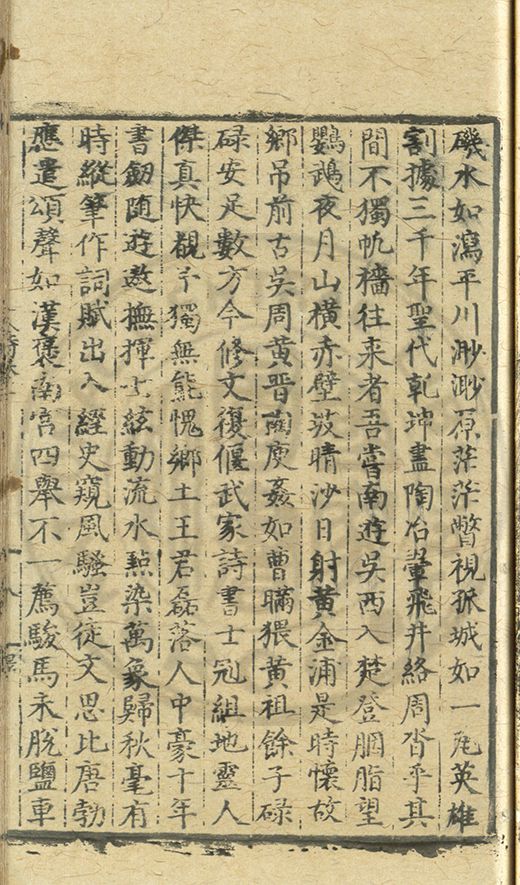 磯水如瀉平川渺渺原茫茫瞥視孤城如一丸英雄
割據三千年聖代乾坤盡陶冶翬飛井絡周沓乎其
間不獨帆檣往来者吾嘗南遊吴西入楚登胭脂望
鸚鵡夜月山横赤壁岐晴沙日射黄金浦是時懷故
鄉吊前古吴周黄晋陶庾姦如曹瞞猥黄祖餘子碌
碌安足數方今修文復偃武家詩書士冠組地靈人
傑真快覩予獨無能愧鄉土王君磊落人中豪十年
書劒随遊遨撫揮七絃動流水㸃染萬象歸秋毫有
時縱筆作詞賦出入經史窺風騷豈徒文思比唐勃
應遣頌聲如漢褒南宫四舉不一薦駿馬未脱鹽車